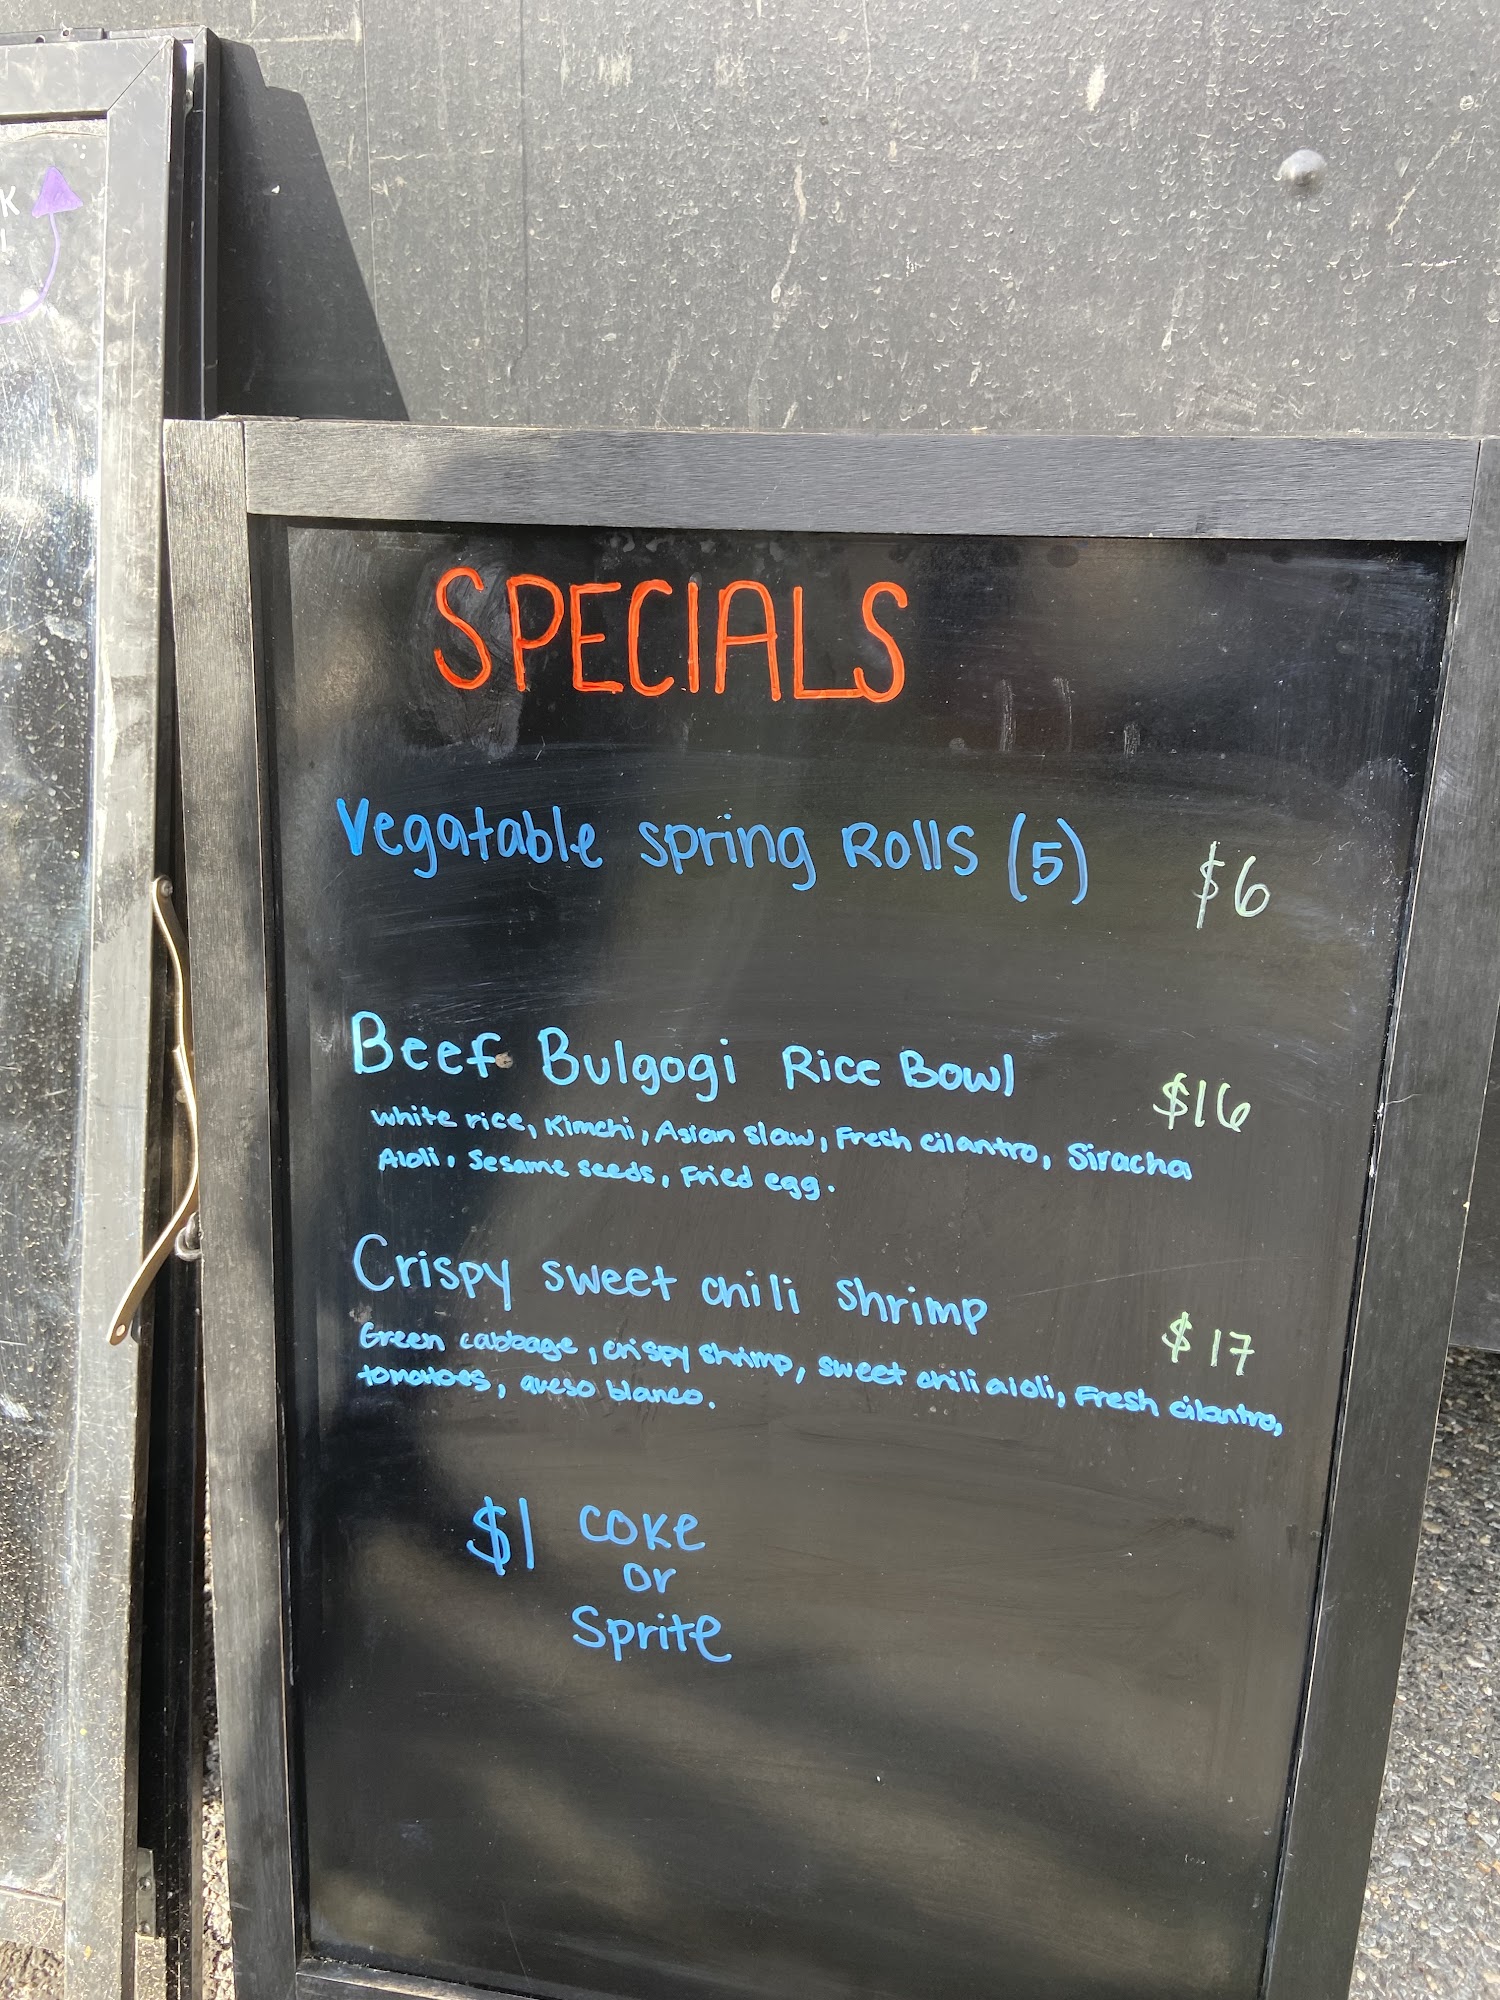 K
SPECIALS
Vegatable Spring Rolls (5) $6
Beef Bulgogi Rice Bowl $16
white rice, Kimchi, Asian slaw, Fresh cilantro, Siracha
Aioli, Sesame seeds, Fried egg.
Crispy sweet chili shrimp $17
Green cabbage, crispy shrimp, sweet chili aioli, Fresh cilantro,
tomatoes, queso blanco.
$1 coke
or
Sprite